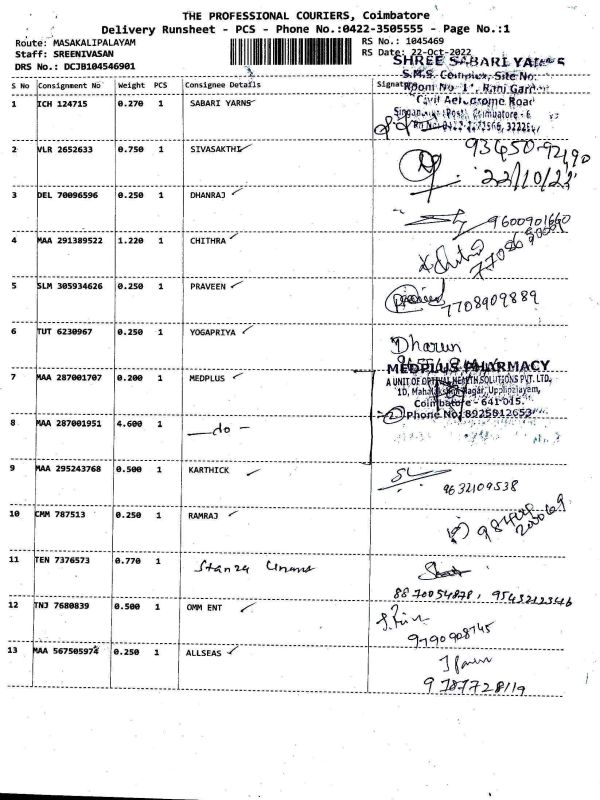 THE PROFESSIONAL COURIERS, Coimbatore
Delivery Runsheet - PCS - Phone No.:0422-3505555 - Page No.:1
Route: MASAKALIPALAYAM
Staff: SREENIVASAN
DRS No.: DCJB104546901
RS No.: 1045469
RS Date: 22-Oct-2022
SHREE SABARI YARNS
S.M.S. Complex, Site No.
Room No. 1, Rani Garden
Civil Aerodrome Road
S No Consignment No Weight PCS Consignee Details Signature
1 ICH 124715 0.270 1 SABARI YARNS
2 VLR 2652633 0.750 1 SIVASAKTHI
22/10/22
3 DEL 70096596 0.250 1 DHANRAJ
9600901660
4 MAA 291389522 1.220 1 CHITHRA
5 SLM 305934626 0.250 1 PRAVEEN
7708909889
6 TUT 6230967 0.250 1 YOGAPRIYA
Dharun
MEDPLUS PHARMACY
7 MAA 287001707 0.200 1 MEDPLUS
A UNIT OF OPTIVAL HEALTH SOLUTIONS PVT. LTD.
Coimbatore - 641 015.
Phone No: 8925812653
8 MAA 287001951 4.600 1 — do —
9 MAA 295243768 0.500 1 KARTHICK
9632109538
10 CMM 787513 0.250 1 RAMRAJ
11 TEN 7376573 0.770 1 Stanza
8870054878,
12 TNJ 7680839 0.500 1 OMM ENT
9790908745
13 MAA 567505974 0.250 1 ALLSEAS
9787728119